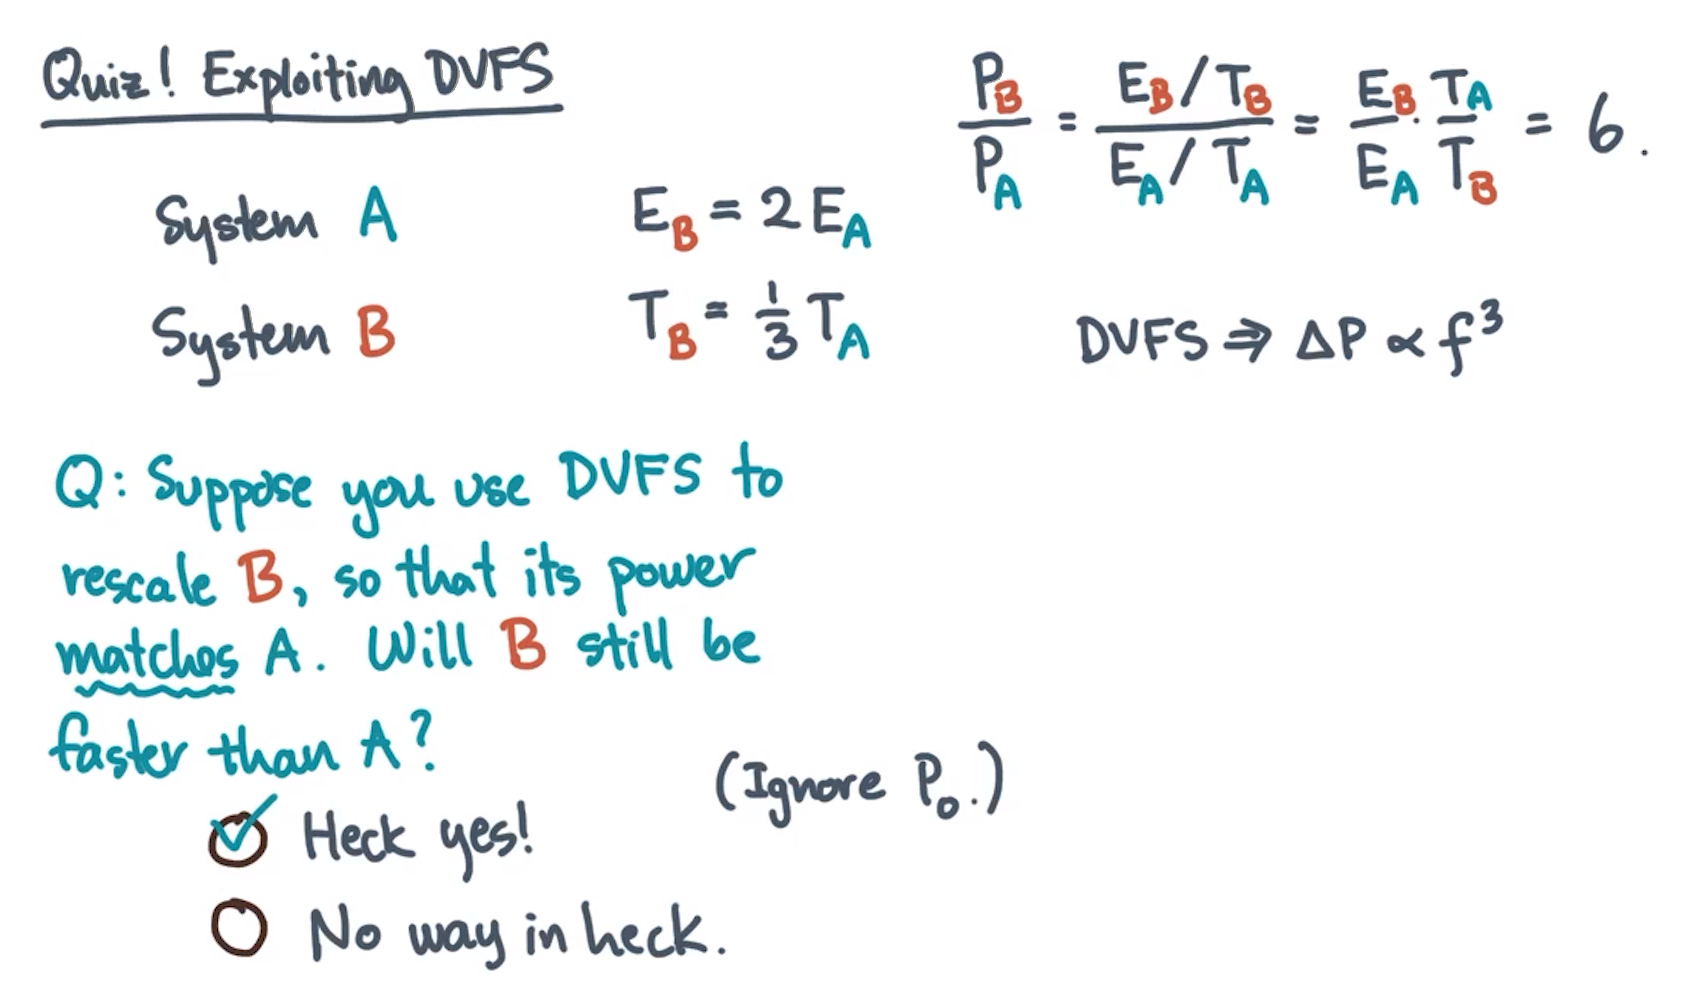 Quiz! Exploiting DVFS
System A
System B
E_B = 2 E_A
T_B = 1/3 T_A
P_B / P_A = (E_B / T_B) / (E_A / T_A) = E_B / E_A · T_A / T_B = 6.
DVFS ⇒ ΔP ∝ f³
Q: Suppose you use DVFS to
rescale B, so that its power
matches A. Will B still be
faster than A?
(Ignore P₀.)
Heck yes!
No way in heck.